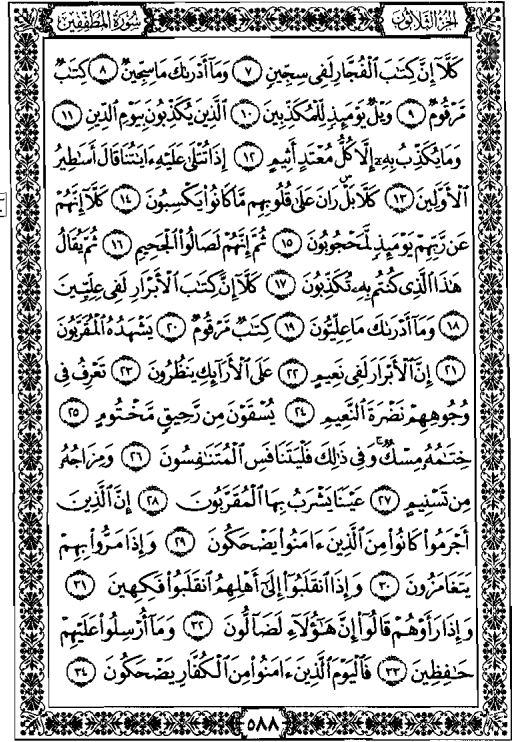 سُورَةُ المُطَفِّفِينَ
الجُزْءُ الثَّلَاثُونَ
كَلَّآ إِنَّ كِتَٰبَ ٱلْفُجَّارِ لَفِى سِجِّينٍ ٧ وَمَآ أَدْرَىٰكَ مَا سِجِّينٌ ٨ كِتَٰبٌ
مَّرْقُومٌ ٩ وَيْلٌ يَوْمَئِذٍ لِّلْمُكَذِّبِينَ ١٠ ٱلَّذِينَ يُكَذِّبُونَ بِيَوْمِ ٱلدِّينِ ١١
وَمَا يُكَذِّبُ بِهِۦٓ إِلَّا كُلُّ مُعْتَدٍ أَثِيمٍ ١٢ إِذَا تُتْلَىٰ عَلَيْهِ ءَايَٰتُنَا قَالَ أَسَٰطِيرُ
ٱلْأَوَّلِينَ ١٣ كَلَّا بَلْ رَانَ عَلَىٰ قُلُوبِهِم مَّا كَانُوا۟ يَكْسِبُونَ ١٤ كَلَّآ إِنَّهُمْ
عَن رَّبِّهِمْ يَوْمَئِذٍ لَّمَحْجُوبُونَ ١٥ ثُمَّ إِنَّهُمْ لَصَالُوا۟ ٱلْجَحِيمِ ١٦ ثُمَّ يُقَالُ
هَٰذَا ٱلَّذِى كُنتُم بِهِۦ تُكَذِّبُونَ ١٧ كَلَّآ إِنَّ كِتَٰبَ ٱلْأَبْرَارِ لَفِى عِلِّيِّينَ
١٨ وَمَآ أَدْرَىٰكَ مَا عِلِّيُّونَ ١٩ كِتَٰبٌ مَّرْقُومٌ ٢٠ يَشْهَدُهُ ٱلْمُقَرَّبُونَ
٢١ إِنَّ ٱلْأَبْرَارَ لَفِى نَعِيمٍ ٢٢ عَلَى ٱلْأَرَآئِكِ يَنظُرُونَ ٢٣ تَعْرِفُ فِى
وُجُوهِهِمْ نَضْرَةَ ٱلنَّعِيمِ ٢٤ يُسْقَوْنَ مِن رَّحِيقٍ مَّخْتُومٍ ٢٥
خِتَٰمُهُۥ مِسْكٌ ۚ وَفِى ذَٰلِكَ فَلْيَتَنَافَسِ ٱلْمُتَنَٰفِسُونَ ٢٦ وَمِزَاجُهُۥ
مِن تَسْنِيمٍ ٢٧ عَيْنًا يَشْرَبُ بِهَا ٱلْمُقَرَّبُونَ ٢٨ إِنَّ ٱلَّذِينَ
أَجْرَمُوا۟ كَانُوا۟ مِنَ ٱلَّذِينَ ءَامَنُوا۟ يَضْحَكُونَ ٢٩ وَإِذَا مَرُّوا۟ بِهِمْ
يَتَغَامَزُونَ ٣٠ وَإِذَا ٱنقَلَبُوٓا۟ إِلَىٰٓ أَهْلِهِمُ ٱنقَلَبُوا۟ فَكِهِينَ ٣١
وَإِذَا رَأَوْهُمْ قَالُوٓا۟ إِنَّ هَٰٓؤُلَآءِ لَضَآلُّونَ ٣٢ وَمَآ أُرْسِلُوا۟ عَلَيْهِمْ
حَٰفِظِينَ ٣٣ فَٱلْيَوْمَ ٱلَّذِينَ ءَامَنُوا۟ مِنَ ٱلْكُفَّارِ يَضْحَكُونَ ٣٤
٥٨٨